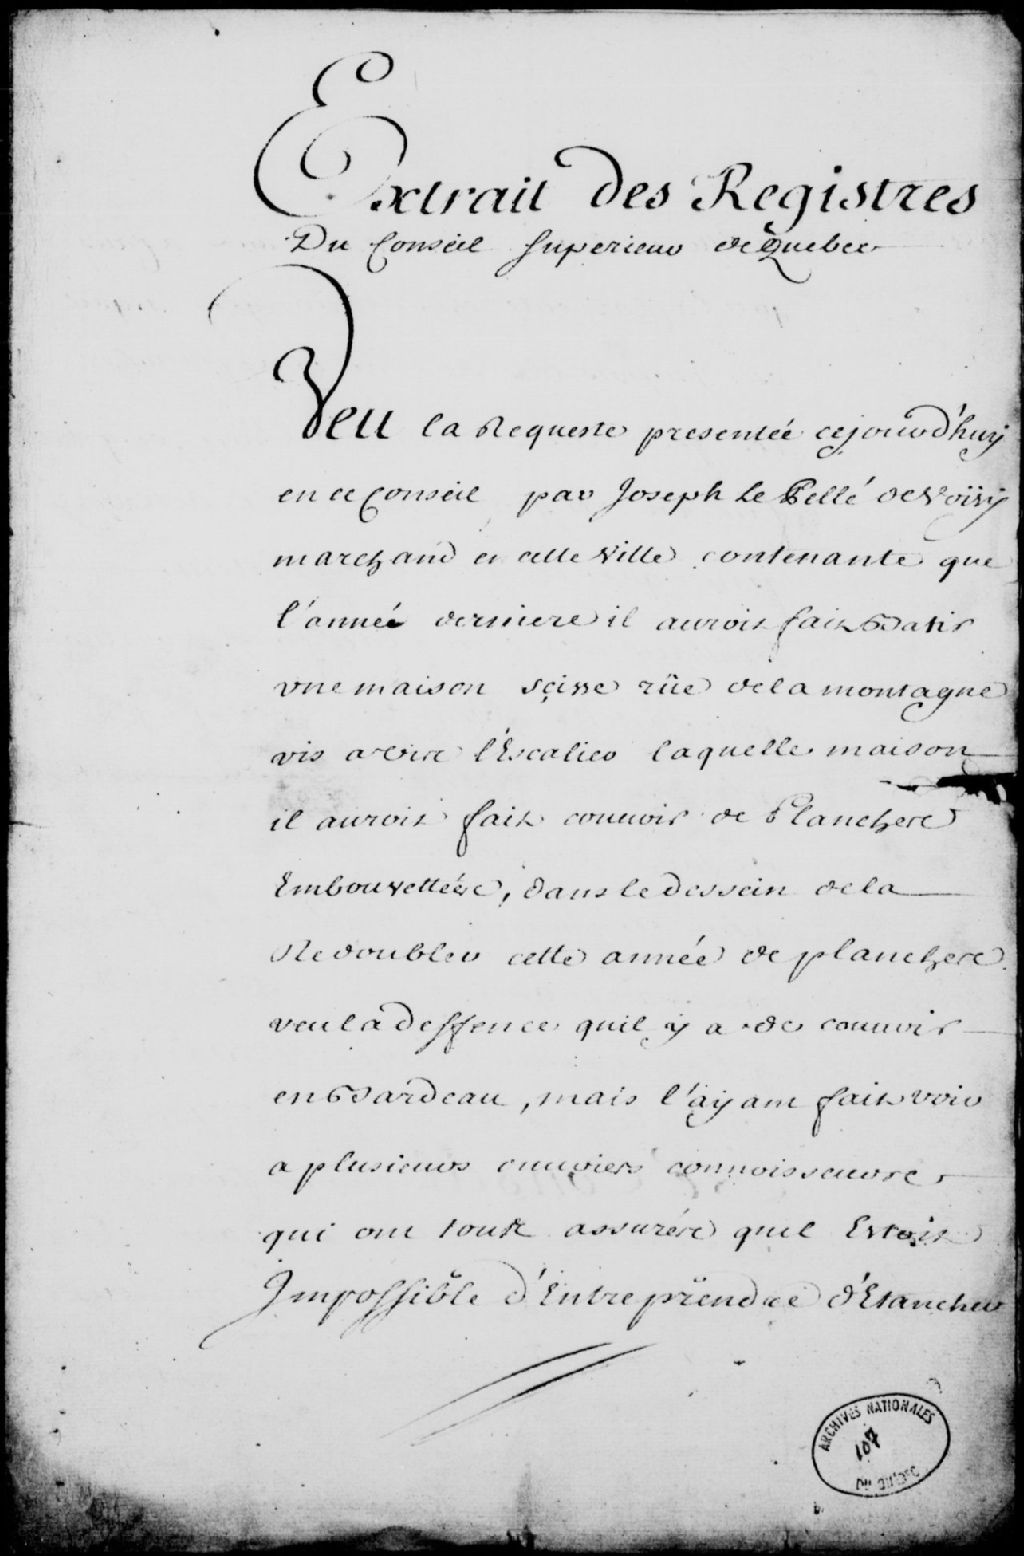 Extrait des Registres
Du Conseil Superieur de Quebec
Veu la Requeste presentée cejourd'huy
en ce Conseil par Joseph Le Pellé de Voisy
marchand en cette Ville contenante que
l'année derniere il auroit fait Batir
une maison scisse rüe de la montagne
vis a vis l'Escalier laquelle maison
il auroit fait couvrir de Planches
Embouvettées, dans le dessein de la
Redoubler cette année de planches
veu la deffence quil ÿ a de couvrir
en Bardeau, mais l'aÿant fait voir
a plusieurs ouvriers connoisseurs
qui ont tous assurés quil Estoit
Impossible d'Entreprendre d'Etancher
ARCHIVES NATIONALES
107
DU QUÉBEC